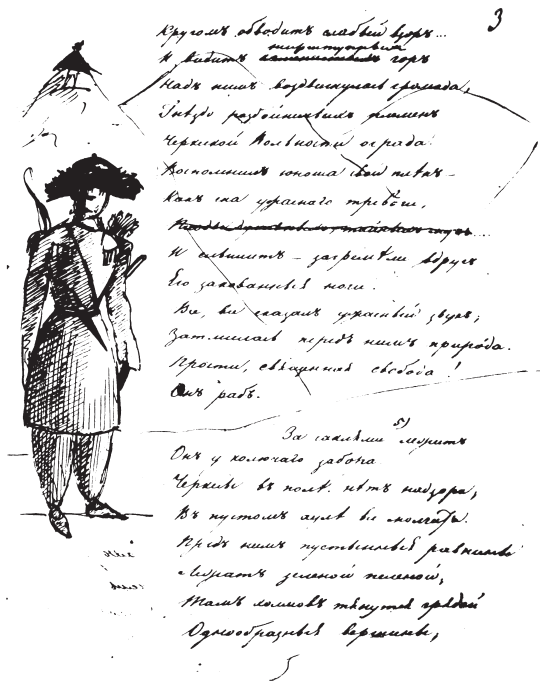 3
Кругомъ обводитъ слабый взоръ...
неприступныхъ
И видитъ горъ
Надъ нимъ воздвигнулась громада,
Гнѣздо разбойничьихъ племенъ
Черкеской вольности ограда.
Воспомнилъ юноша свой плѣнъ –
Какъ сна ужаснаго тревоги,
И слышитъ – загремѣли вдругъ
Его закованныя ноги.
Все, все сказалъ ужасный звукъ;
Затмилась передъ нимъ природа.
Прости, священная свобода!
Онъ рабъ.
За саклями 5) лежитъ
Онъ у колючаго забора
Черкесы въ полѣ. нѣтъ надзора,
Въ пустомъ аулѣ все молчитъ.
Предъ нимъ пустынныя равнины
Лежатъ зеленой пеленой,
Тамъ холмовъ тянутся грядой
Однообразныя вершины,